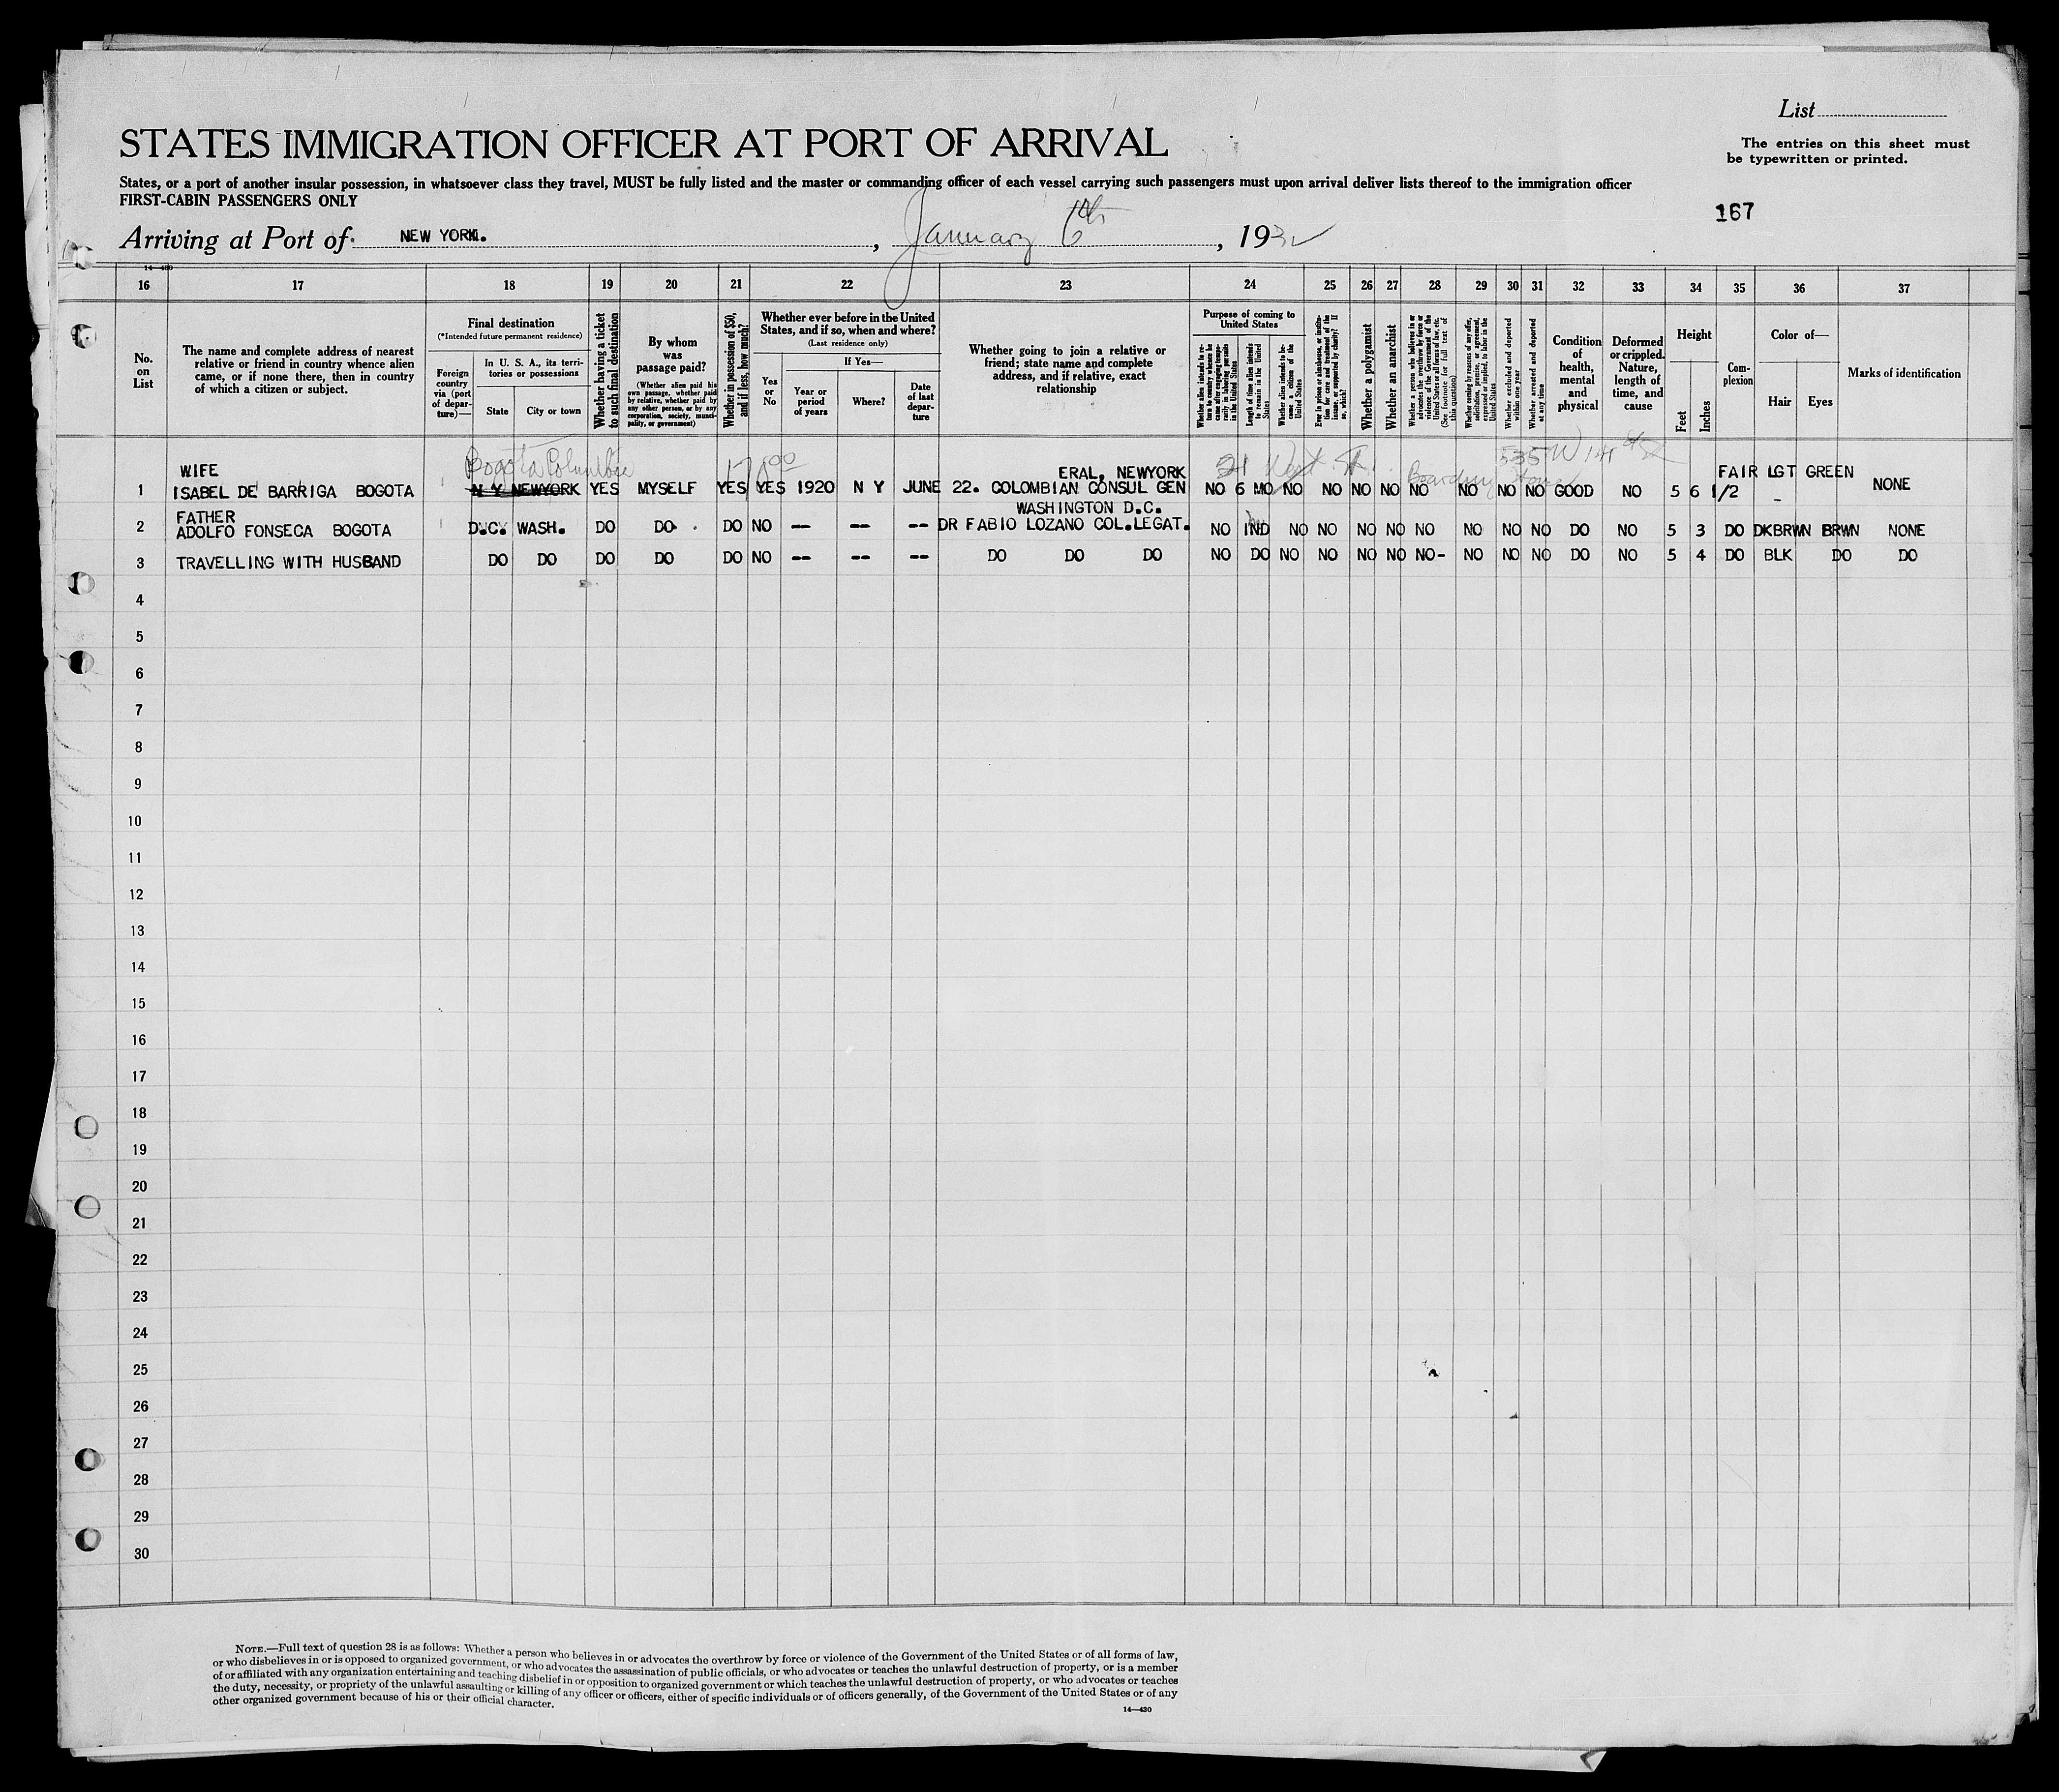 List
STATES IMMIGRATION OFFICER AT PORT OF ARRIVAL
The entries on this sheet must
be typewritten or printed.
States, or a port of another insular possession, in whatsoever class they travel, MUST be fully listed and the master or commanding officer of each vessel carrying such passengers must upon arrival deliver lists thereof to the immigration officer
FIRST-CABIN PASSENGERS ONLY
167
Arriving at Port of NEW YORK. , January 6th , 1932
14—430
16 17 18 19 20 21 22 23 24 25 26 27 28 29 30 31 32 33 34 35 36 37
No. on List
The name and complete address of nearest relative or friend in country whence alien came, or if none there, then in country of which a citizen or subject.
Final destination
(*Intended future permanent residence)
Foreign country via (port of departure)—
In U. S. A., its territories or possessions
State
City or town
Whether having a ticket to such final destination
By whom was passage paid?
(Whether alien paid his own passage, whether paid by relative, whether paid by any other person, or by any corporation, society, municipality, or government)
Whether in possession of $50, and if less, how much?
Whether ever before in the United States, and if so, when and where?
(Last residence only)
Yes or No
If Yes—
Year or period of years
Where?
Date of last departure
Whether going to join a relative or friend; state name and complete address, and if relative, exact relationship
Purpose of coming to United States
Whether alien intends to return to country whence he came after engaging temporarily in laboring pursuits in the United States
Length of time alien intends to remain in the United States
Whether alien intends to become a citizen of the United States
Ever in prison or almshouse, or institution for care and treatment of the insane, or supported by charity? If so, which?
Whether a polygamist
Whether an anarchist
Whether a person who believes in or advocates the overthrow by force or violence of the Government of the United States or all forms of law, etc. (See footnote for full text of this question)
Whether coming by reasons of any offer, solicitation, promise, or agreement, expressed or implied, to labor in the United States
Whether excluded and deported within one year
Whether arrested and deported at any time
Condition of health, mental and physical
Deformed or crippled. Nature, length of time, and cause
Height
Feet
Inches
Complexion
Color of—
Hair
Eyes
Marks of identification
Bogota Columbia 535 W
WIFE ERAL, NEWYORK 21 West Boarding FAIR LGT GREEN
1 ISABEL DE BARRIGA BOGOTA N Y NEWYORK YES MYSELF YES YES 1920 N Y JUNE 22. COLOMBIAN CONSUL GEN NO 6 MO NO NO NO NO NO NO NO NO GOOD NO 5 6 1/2 - NONE
FATHER WASHINGTON D.C.
2 ADOLFO FONSECA BOGOTA D.C. WASH. DO DO DO NO -- -- -- DR FABIO LOZANO COL.LEGAT. NO IND NO NO NO NO NO NO NO NO DO NO 5 3 DO DKBRWN BRWN NONE
3 TRAVELLING WITH HUSBAND DO DO DO DO DO NO -- -- -- DO DO DO NO DO NO NO NO NO NO- NO NO NO DO NO 5 4 DO BLK DO DO
4
5
6
7
8
9
10
11
12
13
14
15
16
17
18
19
20
21
22
23
24
25
26
27
28
29
30
NOTE.—Full text of question 28 is as follows: Whether a person who believes in or advocates the overthrow by force or violence of the Government of the United States or of all forms of law,
or who disbelieves in or is opposed to organized government, or who advocates the assassination of public officials, or who advocates or teaches the unlawful destruction of property, or is a member
of or affiliated with any organization entertaining and teaching disbelief in or opposition to organized government or which teaches the unlawful destruction of property, or who advocates or teaches
the duty, necessity, or propriety of the unlawful assaulting or killing of any officer or officers, either of specific individuals or of officers generally, of the Government of the United States or of any
other organized government because of his or their official character.
14—430